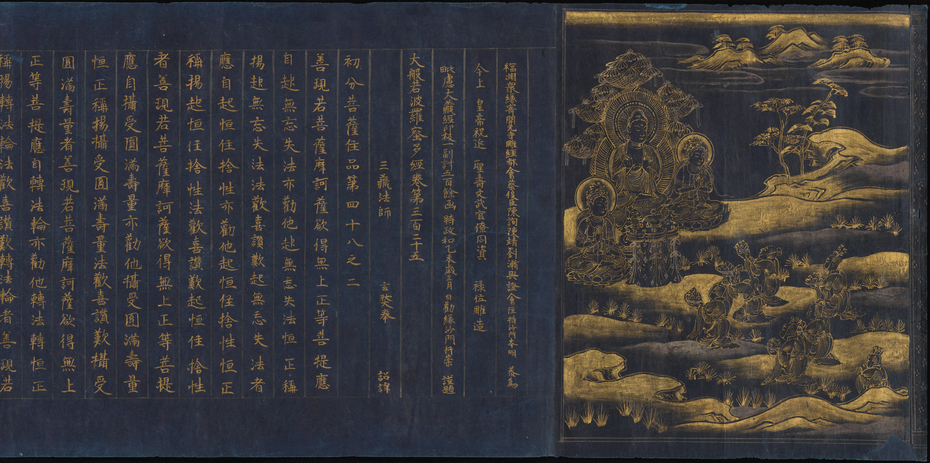 福州衆緣寄開元寺雕經都會蔡俊臣陳詢陳靖劉漸與證會住持沙門本明 恭為
今上 皇帝祝延 聖壽文武官僚同資 祿位雕造
毗盧大藏經板一副計五百餘函時政和 未歲 月日勸緣沙門行崇 謹題
大般若波羅蜜多經卷第三百二十五
三藏法師 玄奘奉 詔譯
初分菩薩住品第四十八之二
善現若菩薩摩訶薩欲得無上正等菩提應
自起無忘失法亦勸他起無忘失法恒正稱
揚起無忘失法法歡喜讚歎起無忘失法者
應自起恒住捨性亦勸他起恒住捨性恒正
稱揚起恒住捨性法歡喜讚歎起恒住捨性
者善現若菩薩摩訶薩欲得無上正等菩提
應自攝受圓滿壽量亦勸他攝受圓滿壽量
恒正稱揚攝受圓滿壽量法歡喜讚歎攝受
圓滿壽量者善現若菩薩摩訶薩欲得無上
正等菩提應自轉法輪亦勸他轉法輪恒正
稱揚轉法輪法歡喜讚歎轉法輪者善現若